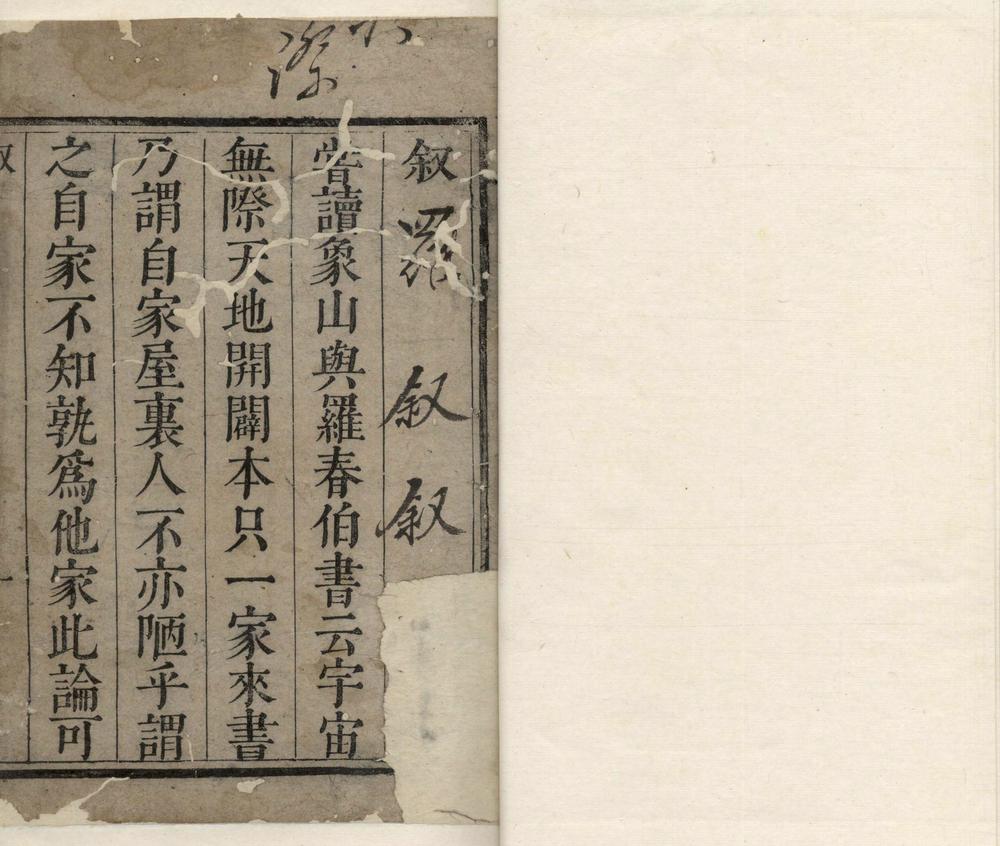 际
叙 羅 叙 叙
嘗讀象山與羅春伯書云宇宙
無際天地開闢本只一家來書
乃謂自家屋裏人不亦陋乎謂
之自家不知孰爲他家此論可
叙
一